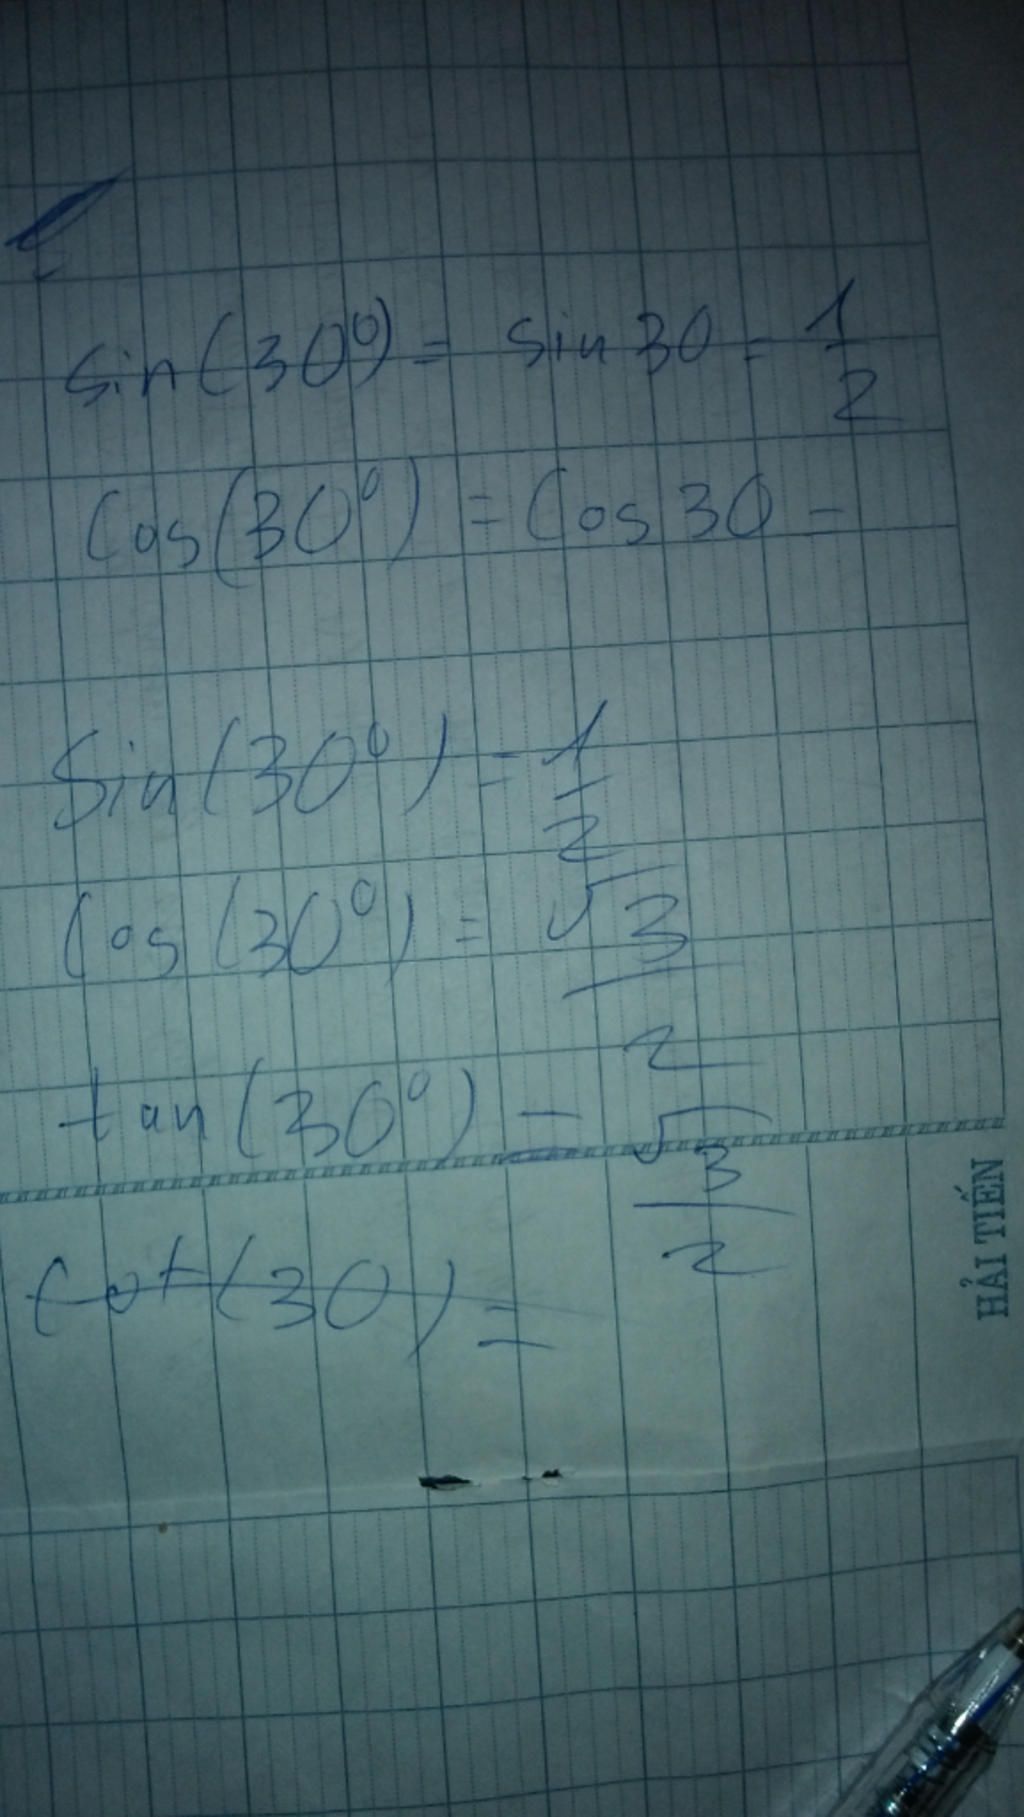 sin(30⁰) = sin 30 = 1/2
Cos(30⁰) = Cos 30 =
Sin(30⁰) = 1/2
Cos(30⁰) = √3/2
tan(30⁰) = √3/2
Cot(30) =
HẢI TIẾN